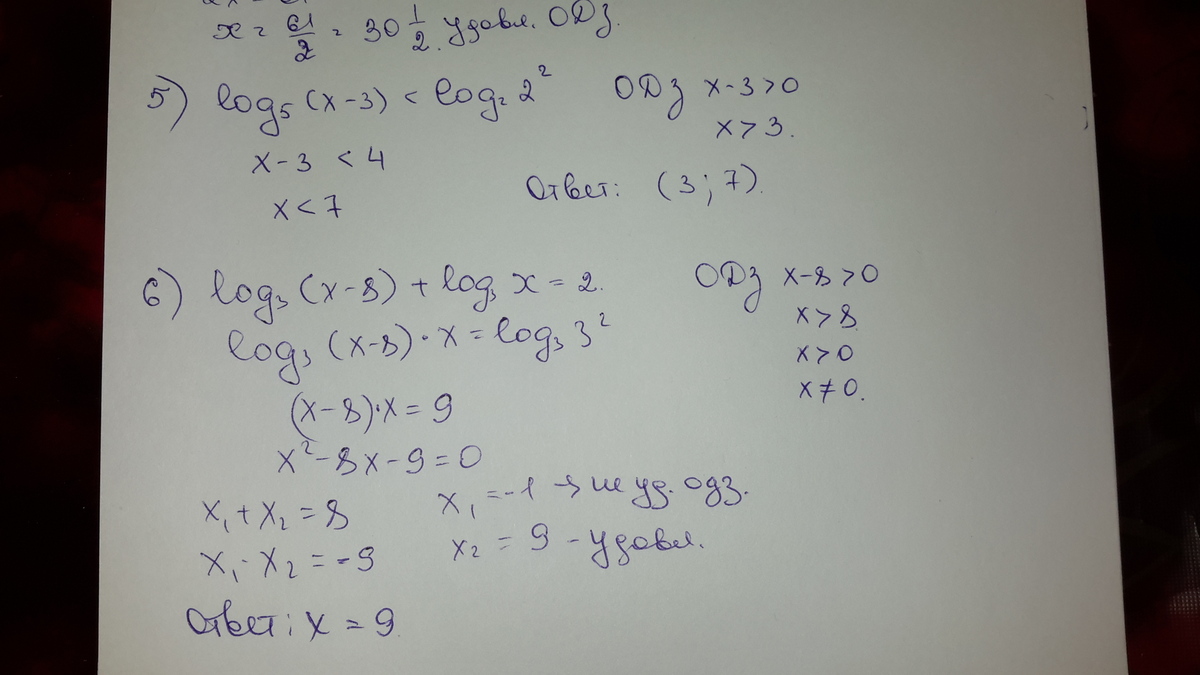 x = 61/2 = 30 1/2. удовл. ОДЗ.
5) log₅ (x-3) < log₂ 2² ОДЗ x-3>0
x>3.
x-3 < 4
x<7 Ответ: (3; 7).
6) log₃ (x-8) + log₃ x = 2. ОДЗ x-8>0
x>8
log₃ (x-8)·x = log₃ 3²
x>0
x≠0.
(x-8)·x = 9
x²-8x-9=0
x₁+x₂=8 x₁=-1 → не уд. одз.
x₁·x₂=-9 x₂ = 9 - удовл.
Ответ: x = 9.